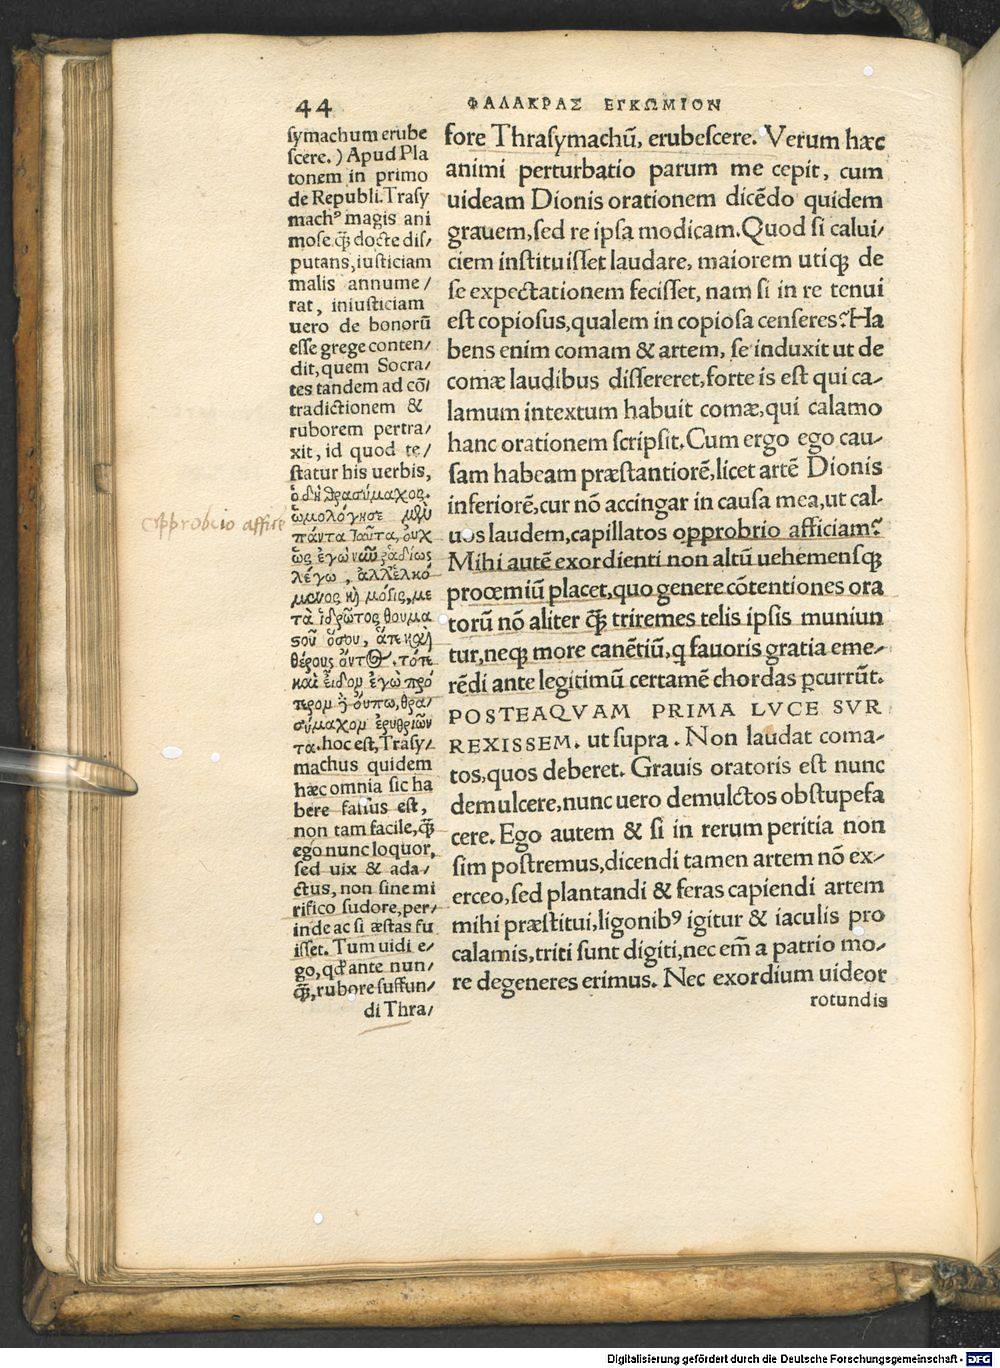 44
ΦΑΛΑΚΡΑΣ ΕΓΚΩΜΙΟΝ
symachum erube
scere.) Apud Pla
tonem in primo
de Republi. Trasy
machꝰ magis ani
mose q̃ꝫ docte dis/
putans, iusticiam
malis annume/
rat, iniusticiam
uero de bonorũ
esse grege conten/
dit, quem Socra/
tes tandem ad cõ/
tradictionem &
ruborem pertra/
xit, id quod te/
statur his uerbis,
ὁ δὴ θρασύμαχος.
ὡμολόγησε μὲν
πάντα ταῦτα, οὐχ
ὡς ἐγὼ νῦν ῥαδίως
λέγω, ἀλλ' ἑλκό
μενος κỳ μόγις, με
τὰ ἱδρῶτος θαυμα
ςοῦ ὅσου, ἅτε καὶ
θέρους ὄντος. τότε
καὶ εἶδον ἐγὼ πρό
τερον ἢ οὔπω, θρα/
σύμαχον ἐρυθριῶν
τα. hoc est, Trasy/
machus quidem
hæc omnia sic ha
bere fassus est,
non tam facile, q̃ꝫ
ego nunc loquor,
sed uix & ada/
ctus, non sine mi
rifico sudore, per/
inde ac si æstas fu
isset. Tum uidi e/
go, qđ ante nun/
q̃ꝫ, rubore suffun/
di Thra/
opprobrio affice
fore Thrasymachũ, erubescere. Verum hæc
animi perturbatio parum me cepit, cum
uideam Dionis orationem dicẽdo quidem
grauem, sed re ipsa modicam. Quod si calui/
ciem instituisset laudare, maiorem utiqꝫ de
se expectationem fecisset, nam si in re tenui
est copiosus, qualem in copiosa censeres? Ha
bens enim comam & artem, se induxit ut de
comæ laudibus dissereret, forte is est qui ca/
lamum intextum habuit comæ, qui calamo
hanc orationem scripsit. Cum ergo ego cau/
sam habeam præstantiorẽ, licet artẽ Dionis
inferiorẽ, cur nõ accingar in causa mea, ut cal/
uos laudem, capillatos opprobrio afficiam?
Mihi autẽ exordienti non altũ uehemensqꝫ
proœmiũ placet, quo genere cõtentiones ora
torũ nõ aliter q̃ꝫ triremes telis ipsis muniun
tur, neqꝫ more canẽtiũ, q fauoris gratia eme/
rẽdi ante legitimũ certamẽ chordas ꝑcurrũt.
POSTEAQVAM PRIMA LVCE SVR
REXISSEM. ut supra. Non laudat coma/
tos, quos deberet. Grauis oratoris est nunc
demulcere, nunc uero demulctos obstupefa
cere. Ego autem & si in rerum peritia non
sim postremus, dicendi tamen artem nõ ex/
erceo, sed plantandi & feras capiendi artem
mihi præstitui, ligonibꝰ igitur & iaculis pro
calamis, triti sunt digiti, nec em̃ a patrio mo/
re degeneres erimus. Nec exordium uideor
rotundis
Digitalisierung gefördert durch die Deutsche Forschungsgemeinschaft - DFG